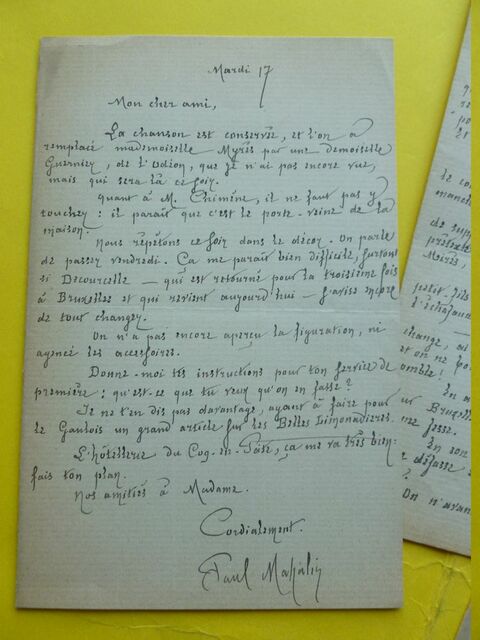 Mardi 17
Mon cher ami,
La chanson est conservée, et l'on a
remplacé mademoiselle Myrès par une demoiselle
Guernier, de l'Odéon, que je n'ai pas encore vue,
mais qui sera là ce soir.
Quant à M. Chimène, il ne faut pas y
toucher : il paraît que c'est le porte-veine de la
maison.
Nous répétons ce soir dans le décor. On parle
de passer vendredi. Ça me paraît bien difficile, surtout
si Decourcelle — qui est retourné pour la troisième fois
à Bruxelles et qui revient aujourd'hui — s'avise encore
de tout changer.
On n'a pas encore aperçu la figuration, ni
agencé les accessoires.
Donne-moi tes instructions pour ton service de
première : qu'est-ce que tu veux qu'on en fasse ?
Je ne t'en dis pas davantage, ayant à faire pour
le Gaulois un grand article sur les Belles Limonadières.
L'hôtellerie du Coq-en-Pâte, ça me va très bien.
fais ton plan.
Nos amitiés à Madame.
Cordialement.
Paul Mahalin
le co
de supp
prétexte
petit-fils
l'échafau
change, ai
et on ne po
En a
Bruxell
me fasse.
En son
On n'avan